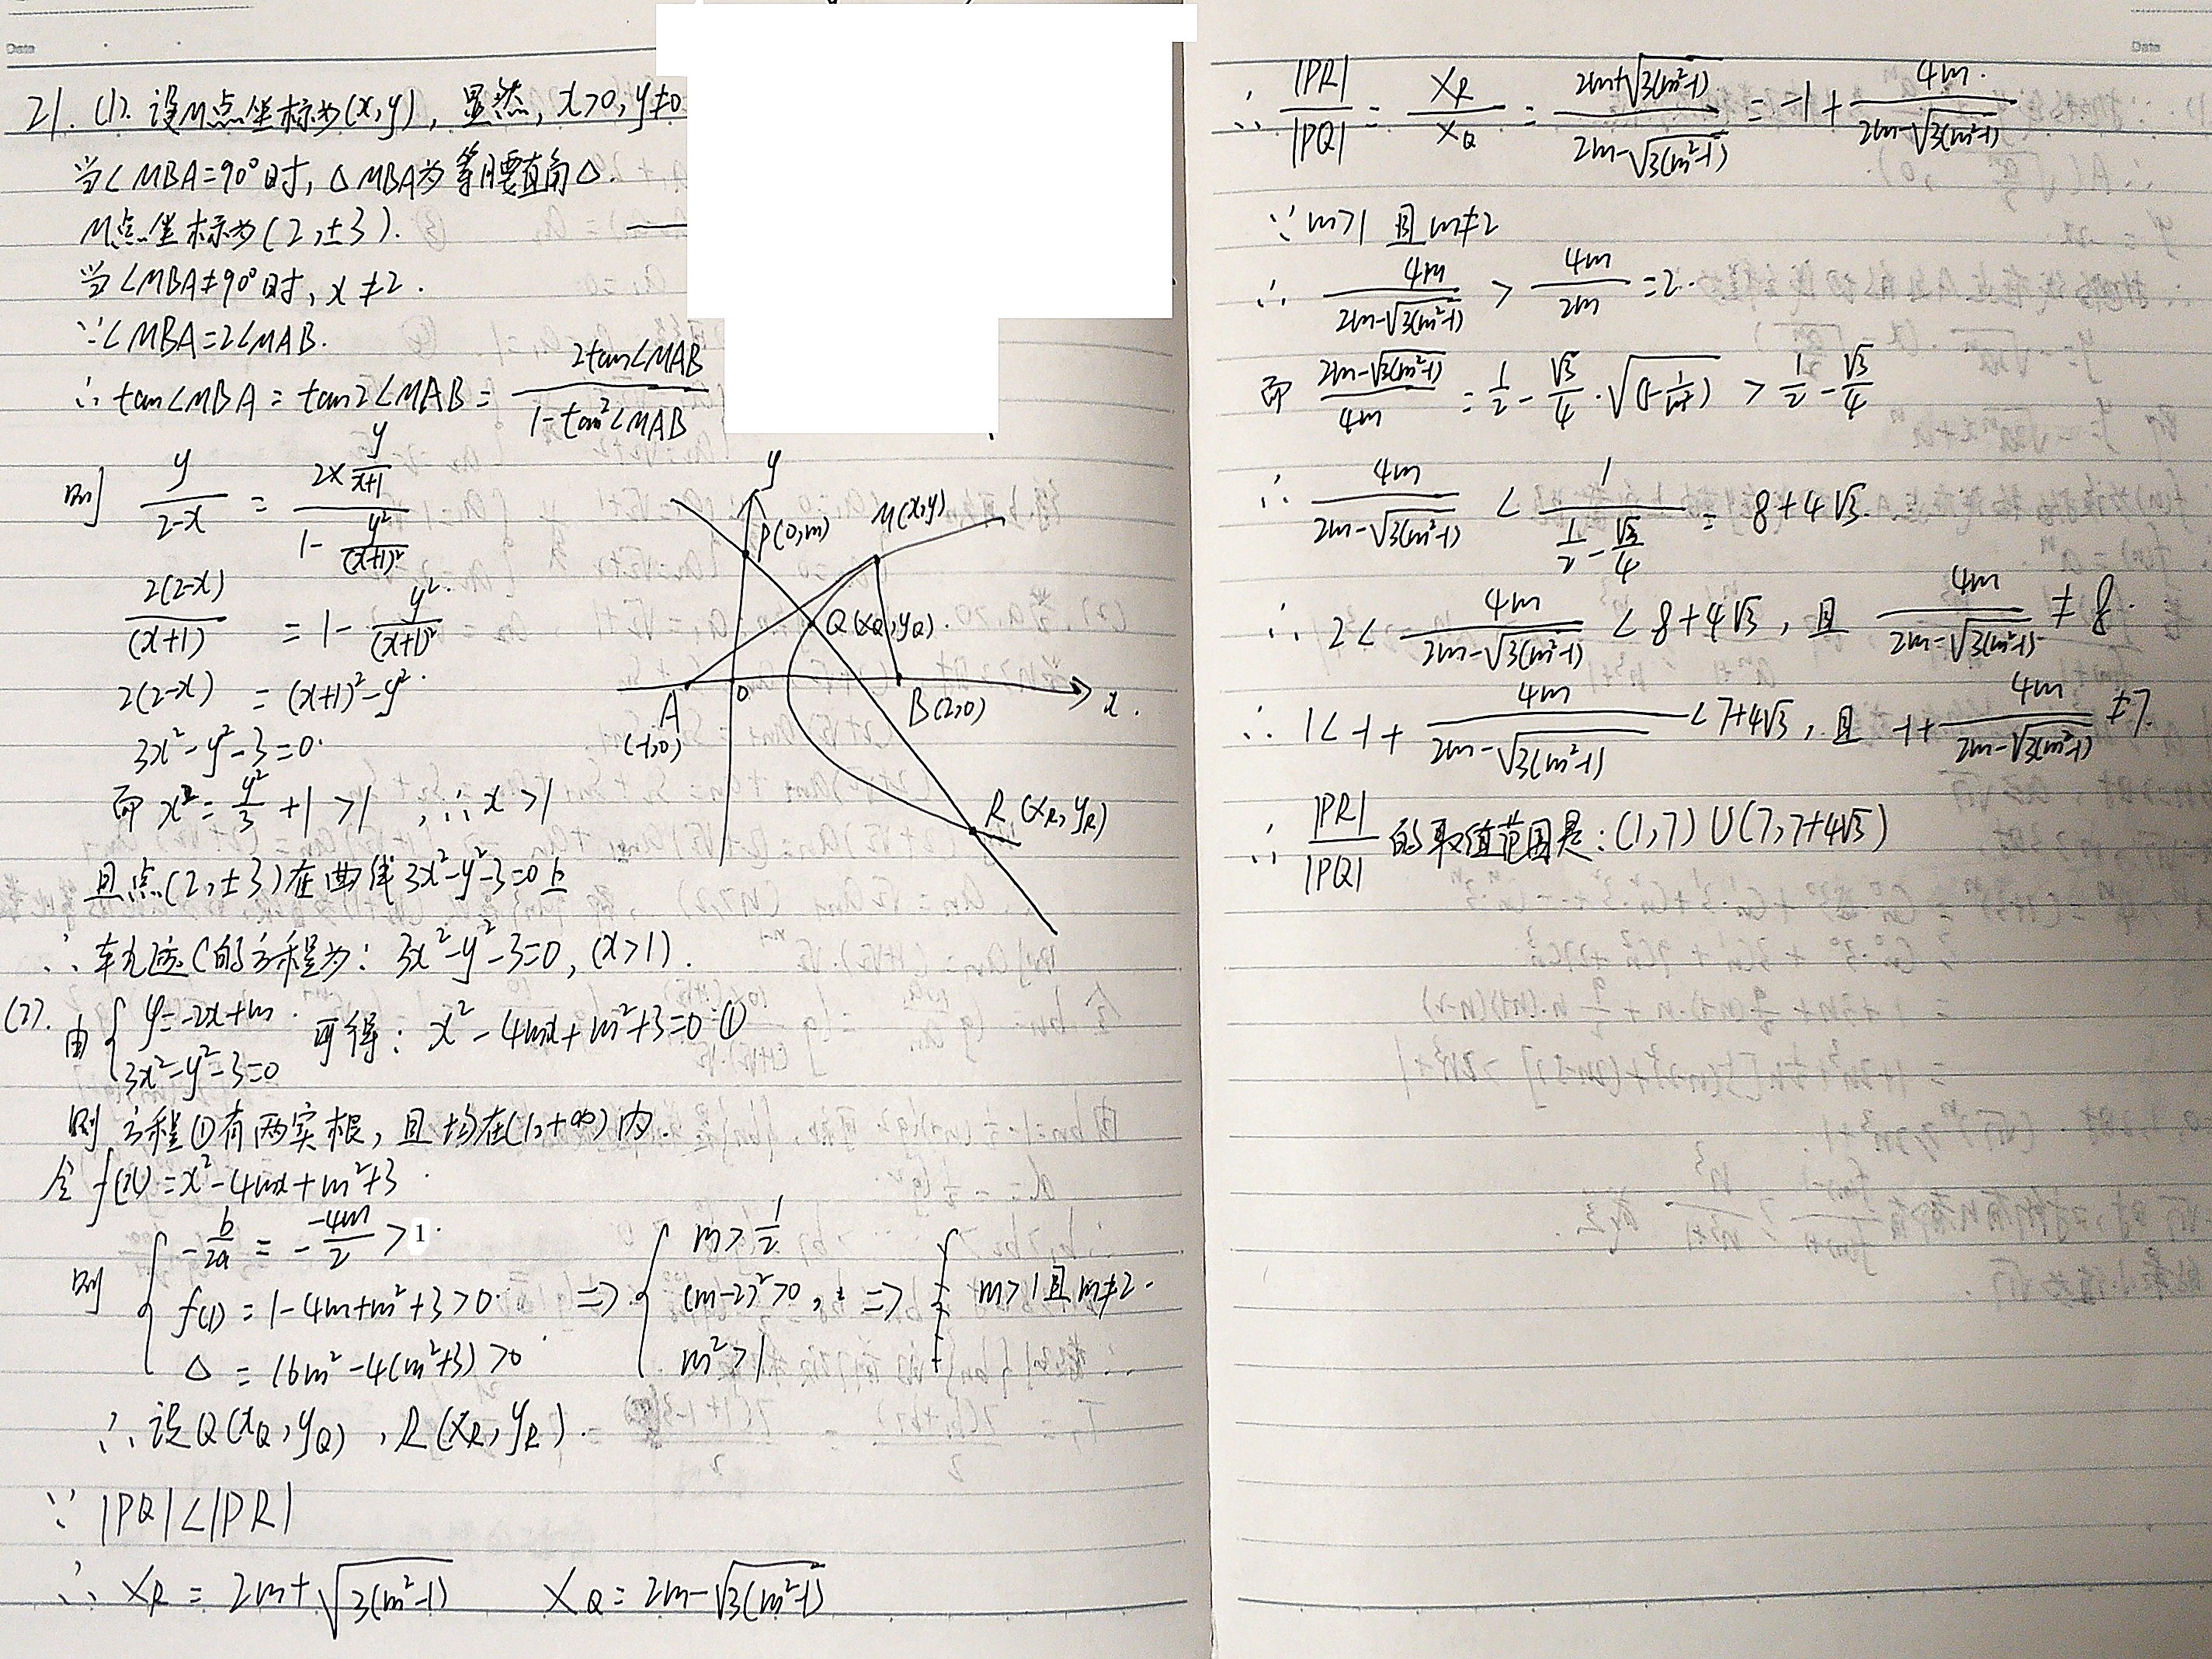 Date
21. (1). 设M点坐标为(x,y), 显然, x>0, y≠0
当∠MBA=90°时, △MBA为等腰直角△.
M点坐标为(2,±3).
当∠MBA≠90°时, x≠2.
∵∠MBA=2∠MAB.
∴ tan∠MBA = tan2∠MAB = \frac{2tan∠MAB}{1-tan²∠MAB}
则 \frac{y}{2-x} = \frac{2×\frac{y}{x+1}}{1-\frac{y²}{(x+1)²}}
\frac{2(2-x)}{(x+1)} = 1-\frac{y²}{(x+1)²}
2(2-x) = (x+1)²-y².
3x²-y²-3=0.
而 x²=\frac{y²}{3}+1>1, ∴x>1
且点(2,±3)在曲线3x²-y²-3=0上
∴轨迹C的方程为: 3x²-y²-3=0, (x>1).
y
P(0,m)
M(x,y)
Q(xQ,yQ).
A
(-1,0)
0
B(2,0)
x.
R(xR,yR)
(2). 由{y=-2x+m. 3x²-y²-3=0 可得: x²-4mx+m²+3=0 ①
则方程①有两实根, 且均在(1,+∞)内.
令f(x)=x²-4mx+m²+3.
则 { -\frac{b}{2a} = -\frac{-4m}{2}>1. f(1)=1-4m+m²+3>0. △=16m²-4(m²+3)>0 => { m>\frac{1}{2} (m-2)²>0, m²>1 => { m>1且m≠2.
∴设Q(xQ,yQ), R(xR,yR).
∵ |PQ|<|PR|
∴ xR = 2m+√3(m²-1) xQ = 2m-√3(m²-1)
Date
∴ \frac{|PR|}{|PQ|} = \frac{xR}{xQ} = \frac{2m+√3(m²-1)}{2m-√3(m²-1)} = -1+\frac{4m.}{2m-√3(m²-1)}
∵ m>1 且m≠2
∴ \frac{4m}{2m-√3(m²-1)} > \frac{4m}{2m} =2.
而 \frac{2m-√3(m²-1)}{4m} = \frac{1}{2}-\frac{√3}{4}·√(1-\frac{1}{m²}) > \frac{1}{2}-\frac{√3}{4}
∴ \frac{4m}{2m-√3(m²-1)} < \frac{1}{\frac{1}{2}-\frac{√3}{4}} = 8+4√3.
∴ 2<\frac{4m}{2m-√3(m²-1)}<8+4√3, 且 \frac{4m}{2m-√3(m²-1)}≠8.
∴ 1<-1+\frac{4m}{2m-√3(m²-1)}<7+4√3, 且 -1+\frac{4m}{2m-√3(m²-1)}≠7.
∴ \frac{|PR|}{|PQ|}的取值范围是: (1,7)∪(7,7+4√3)